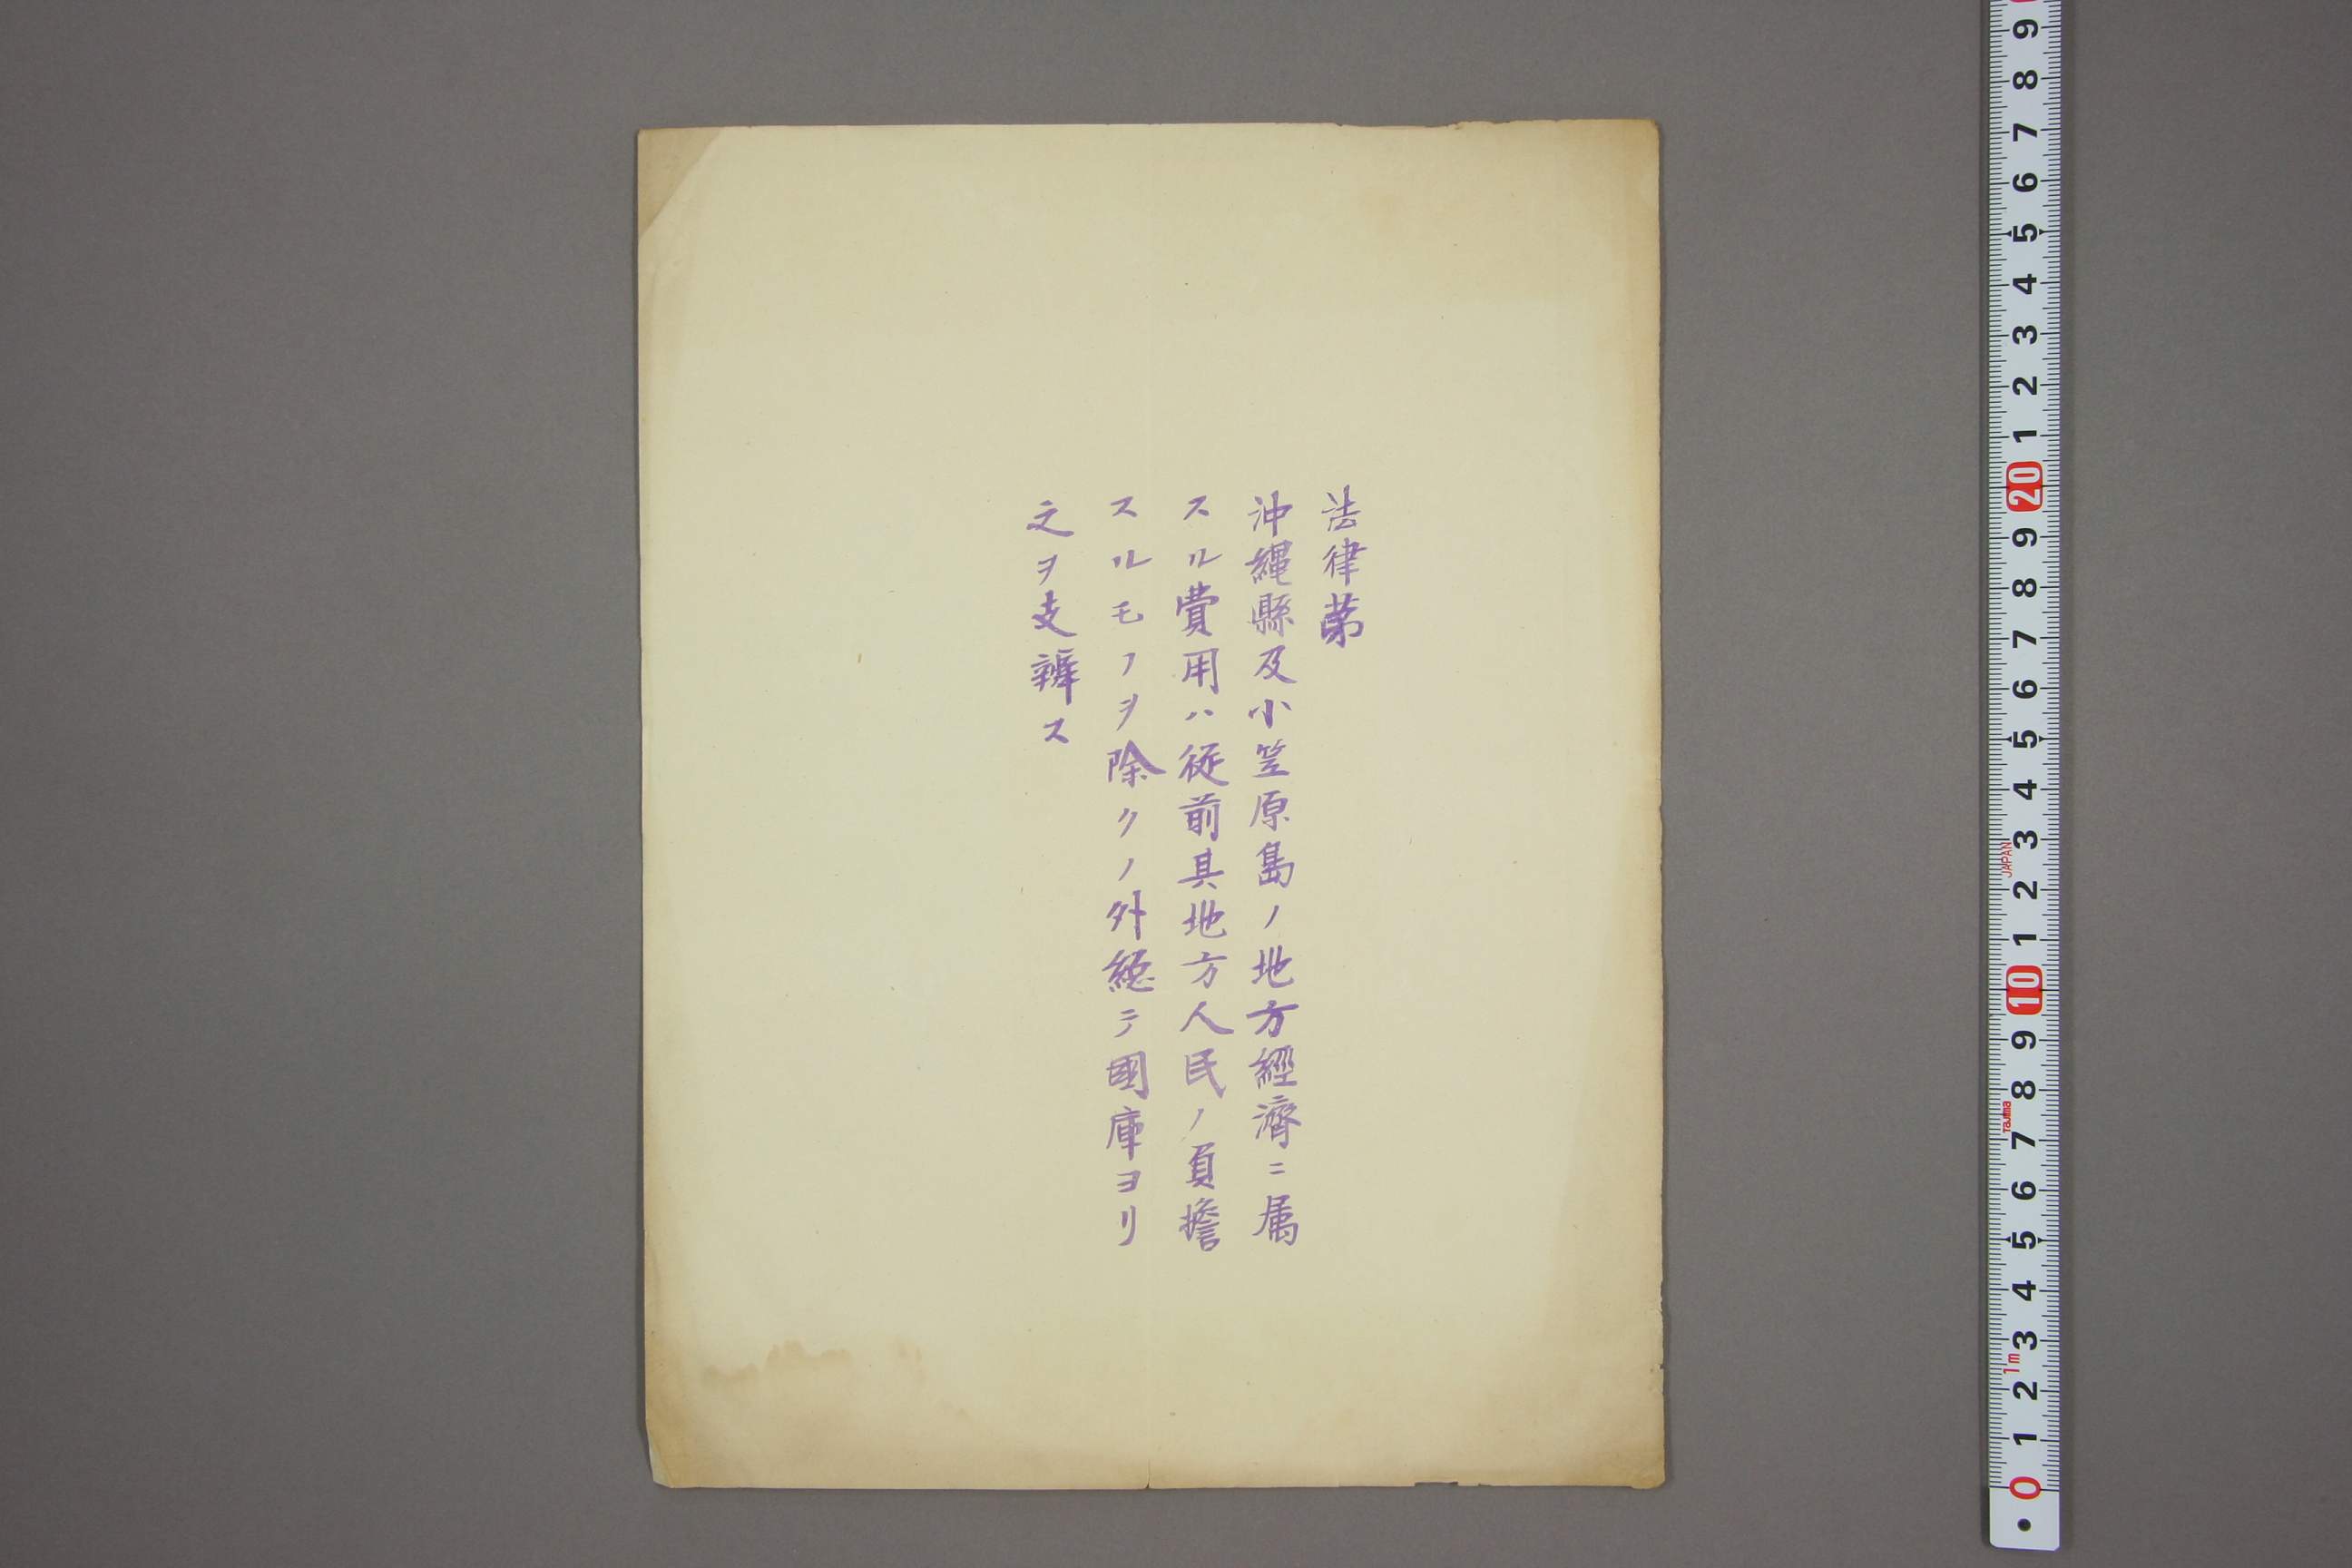 法律第
沖縄縣及小笠原島ノ地方經濟ニ属
スル費用ハ従前其地方人民ノ負擔
スルモノヲ除クノ外総テ國庫ヨリ
之ヲ支辨ス
9
8
7
6
5
4
3
2
1
20
9
8
7
6
5
4
3
JAPAN
2
1
10
9
8
Tajima
7
6
5
4
3
1m
2
1
0